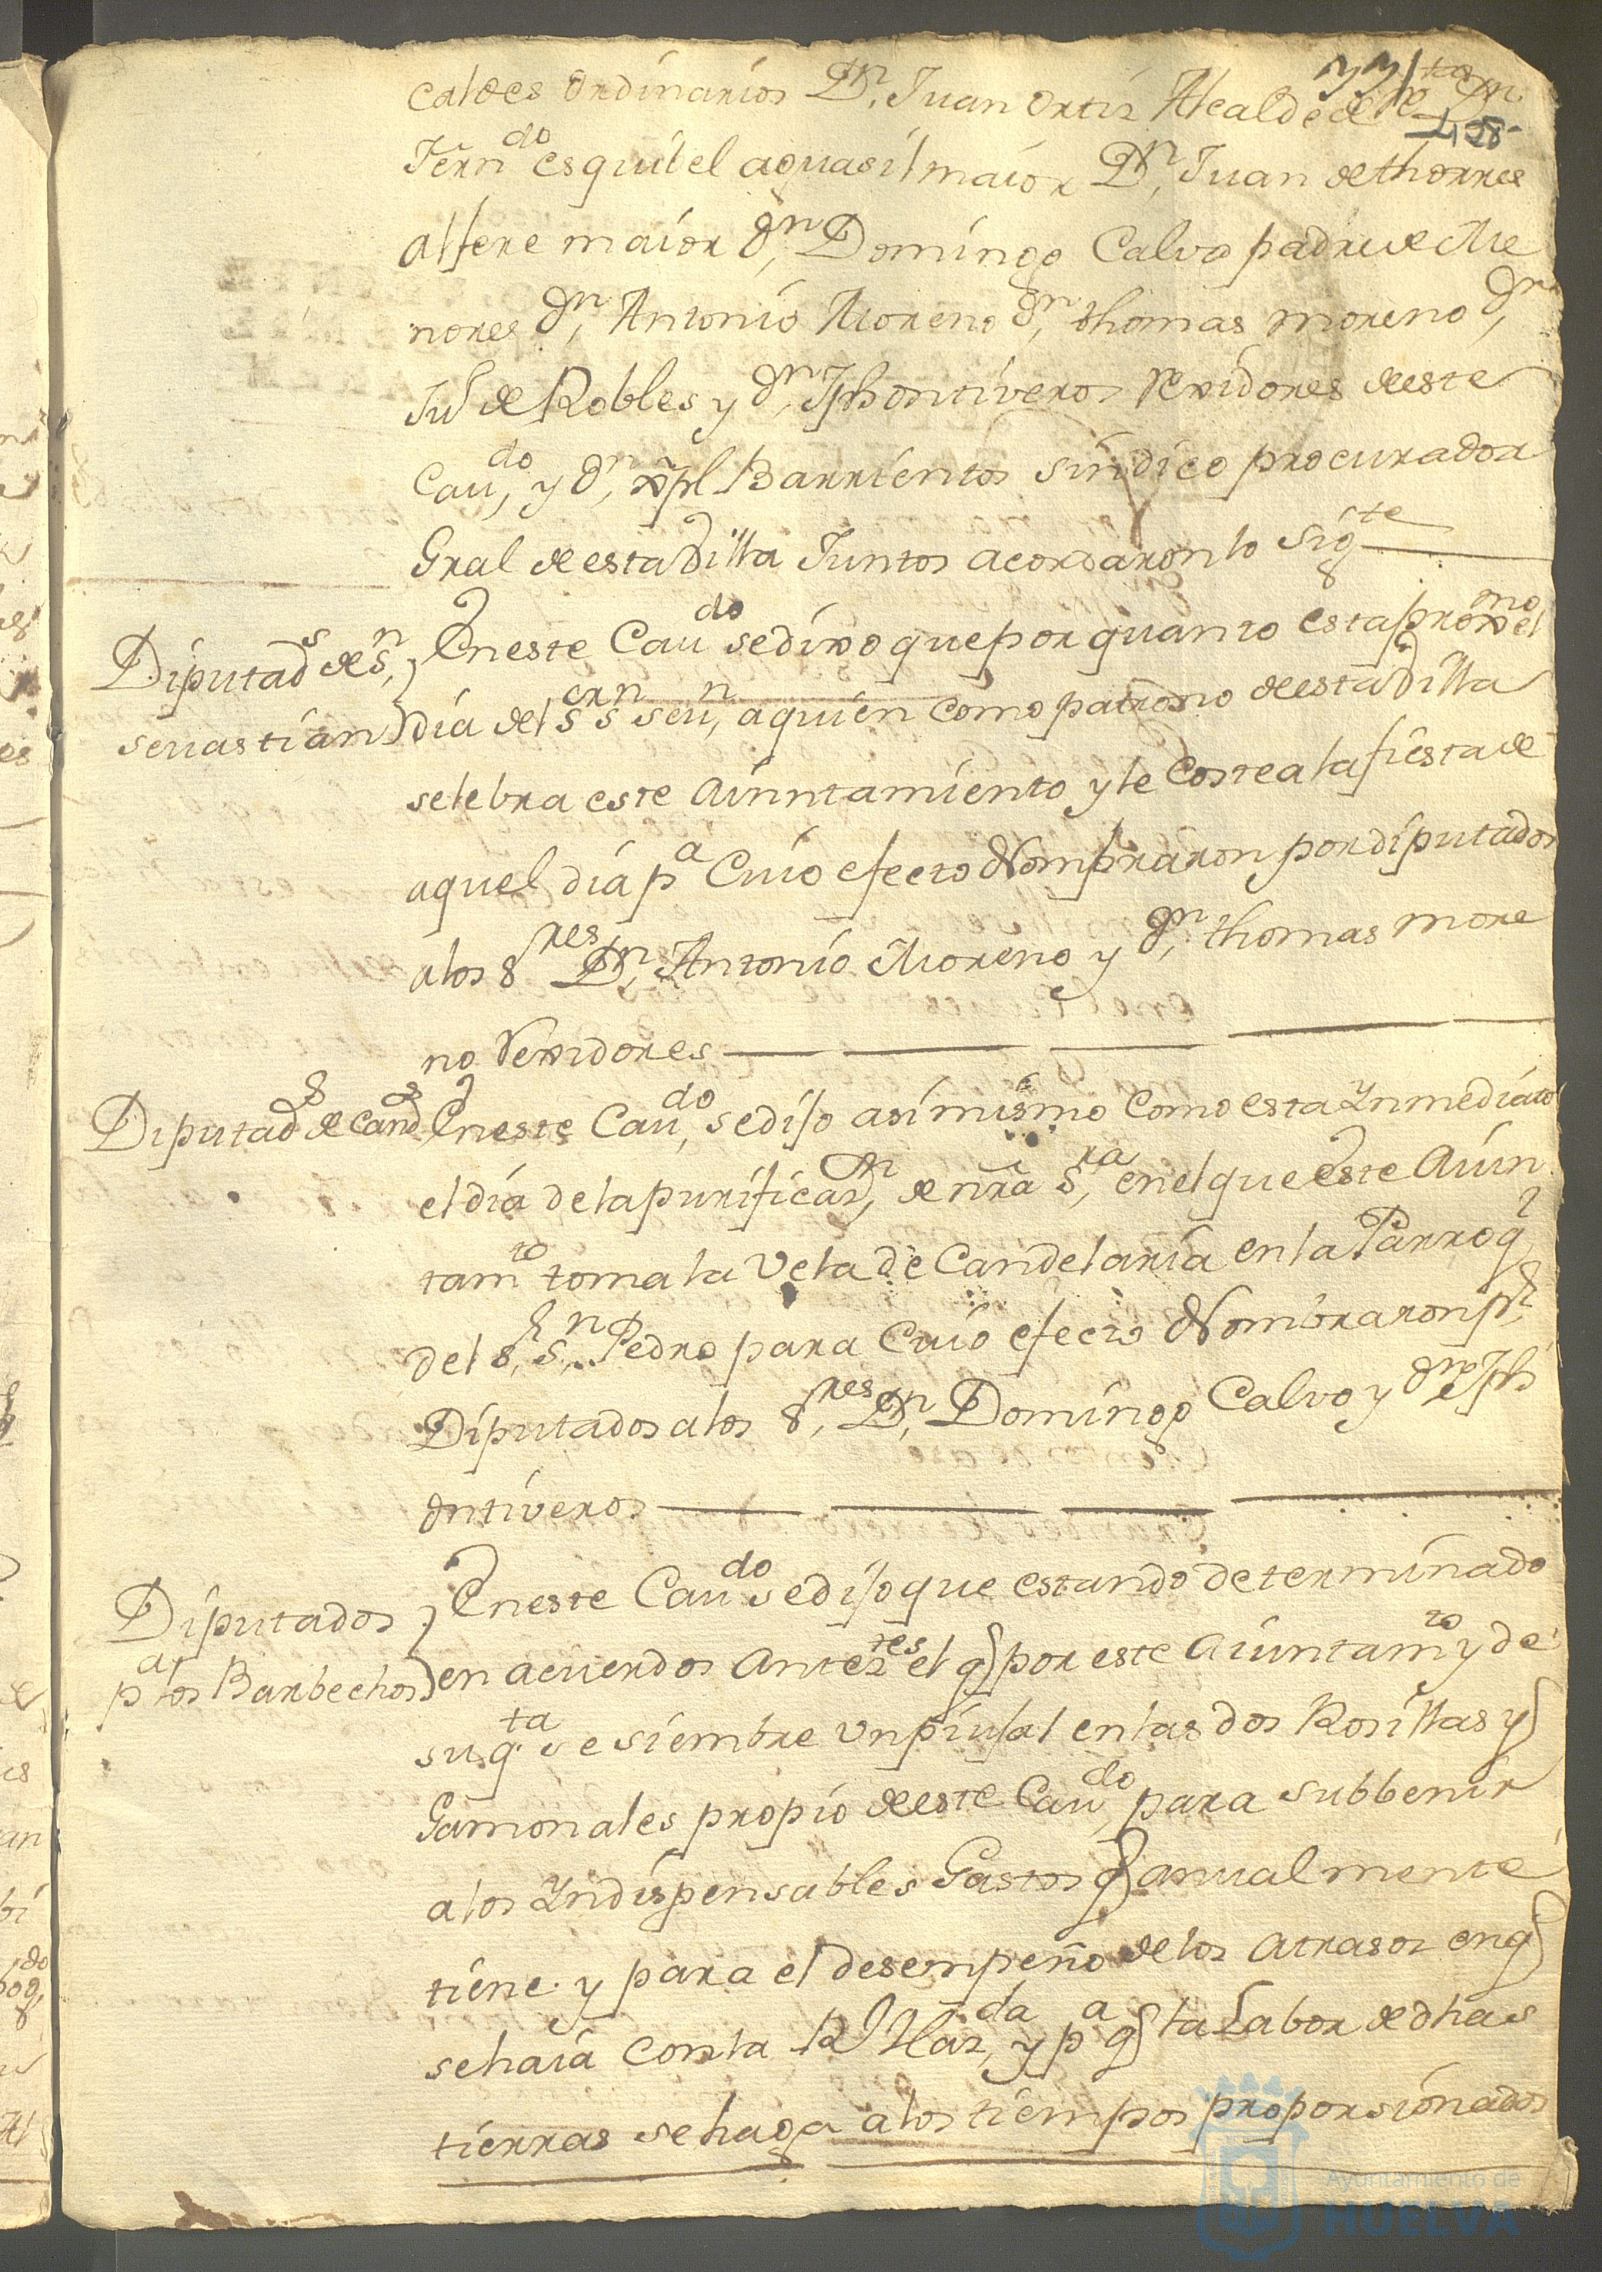 caldes Ordinarios Dn. Juan Ortiz Alcalde de
Fern.do esquibel aguasil maior Dn. Juan de thorres
alfere maior Dn. Domingo Calvo padre de Me
nores Dn. Antonio Moreno Dn. thomas moreno Dn.
Ju.º de Robles y Dn. Jph ontiveros Rexidores de este
Cau.do y Dn. xpl Barrientos sindico procurador
Gral de esta Villa Juntos acordaron lo Sig.te
Diputad.s de S.n
sevastian
En este Cau.do se dixo que por quanto esta proxmo el
dia del S.or S.n Seu.n, a quien como patrono de esta Villa
selebra este Aiuntamiento y le Costea la fiesta de
aquel dia p.a Cuio efecto Nombraron por diputados
a los S.res Dn. Antonio Moreno y Dn. thomas more
no Rexidores
Diputad.s de Cand.s
En este Cau.do se dijo asimismo como esta Ynmediato
el dia de la purificaz.on de nra S.ra, en el que este Aiun
tam.to toma la Vela de Candelaria en la Parroq.l
del S.r S.n Pedro para Cuio efecto Nombraron p.r
Diputados a los S.res Dn. Domingo Calvo y Dn. Jph
Ontiveros
Diputados
p.a los Barbechos
En este Cau.do se dijo que estando determinado
en acuerdos Antez.tes el q por este Aiuntam.to y de
su q.ta se siembre un piujal en las dos Rosillas y
Gamonales propio de este Cau.do, para subbenir
a los Yndispensables Gastos q anualmente
tiene y para el desempeño de los Atrasos en q
se haia con la Rl Haz.da, y p.a q la Labor de dhas
tierras se haga a los tiempos proporsionados
Ayuntamiento de
HUELVA